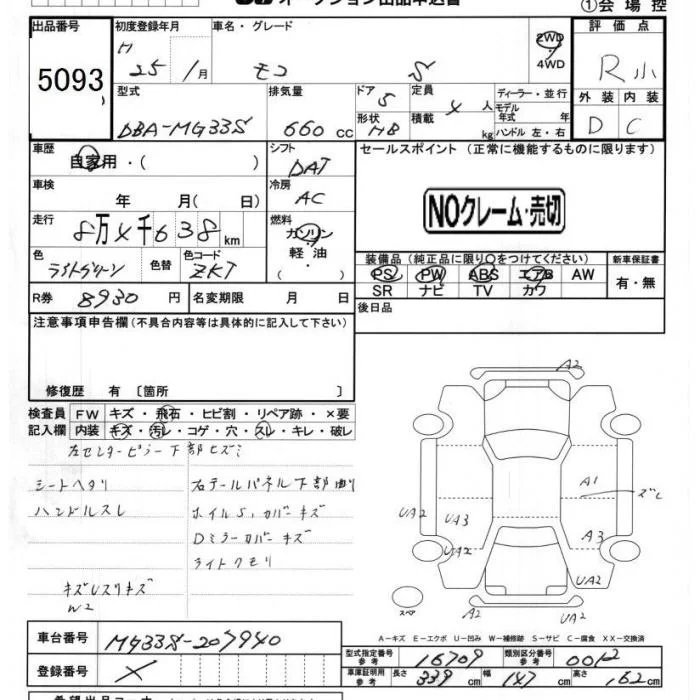 オークション出品申込書
①会場控
出品番号
5093
初度登録年月
H 25年 1月
車名・グレード
モコ S
2WD
4WD
評価点
R 小
外装 内装
D C
型式
DBA-MG33S
排気量
660 cc
ドア 5
形状 HB
定員 4 人
積載 kg
ディーラー・並行
モデル年式 年
ハンドル 左・右
車歴
自家用・( )
シフト
DAT
セールスポイント (正常に機能するものに限ります)
NOクレーム・売切
車検
年 月( 日)
冷房
AC
走行
8万4千638km
燃料
ガソリン
軽油
・( )
色
ライトグリーン
色替
色コード
ZKT
装備品 (純正品に限り○をつけてください)
PS PW ABS エアB AW
SR ナビ TV カワ
新車保証書
有・無
R券 8930 円
名変期限 月 日
後日品
注意事項申告欄 (不具合内容等は具体的に記入して下さい)
修復歴 有 〔箇所 〕
検査員記入欄
FW キズ・飛石・ヒビ割・リペア跡・×要
内装 キズ・汚レ・コゲ・穴・スレ・キレ・破レ
左センターピラー下部ヒズミ
シートヘタリ
右テールパネル下部曲り
ハンドルスレ
ホイルS,カバーキズ
Dミラーカバーキズ
ライトクモリ
キズUスリキズ
W2
A2
A1
ズレ
UA2
UA3
A3
UA2
UA2
UA2
スペア
A-キズ E-エクボ U-凹み W-補修跡 S-サビ C-腐食 XX-交換済
車台番号
MG33S-207940
登録番号
型式指定番号 参考 16709
類別区分番号 参考 0012
車庫証明用 参考 長さ 339 cm 幅 147 cm 高さ 162 cm